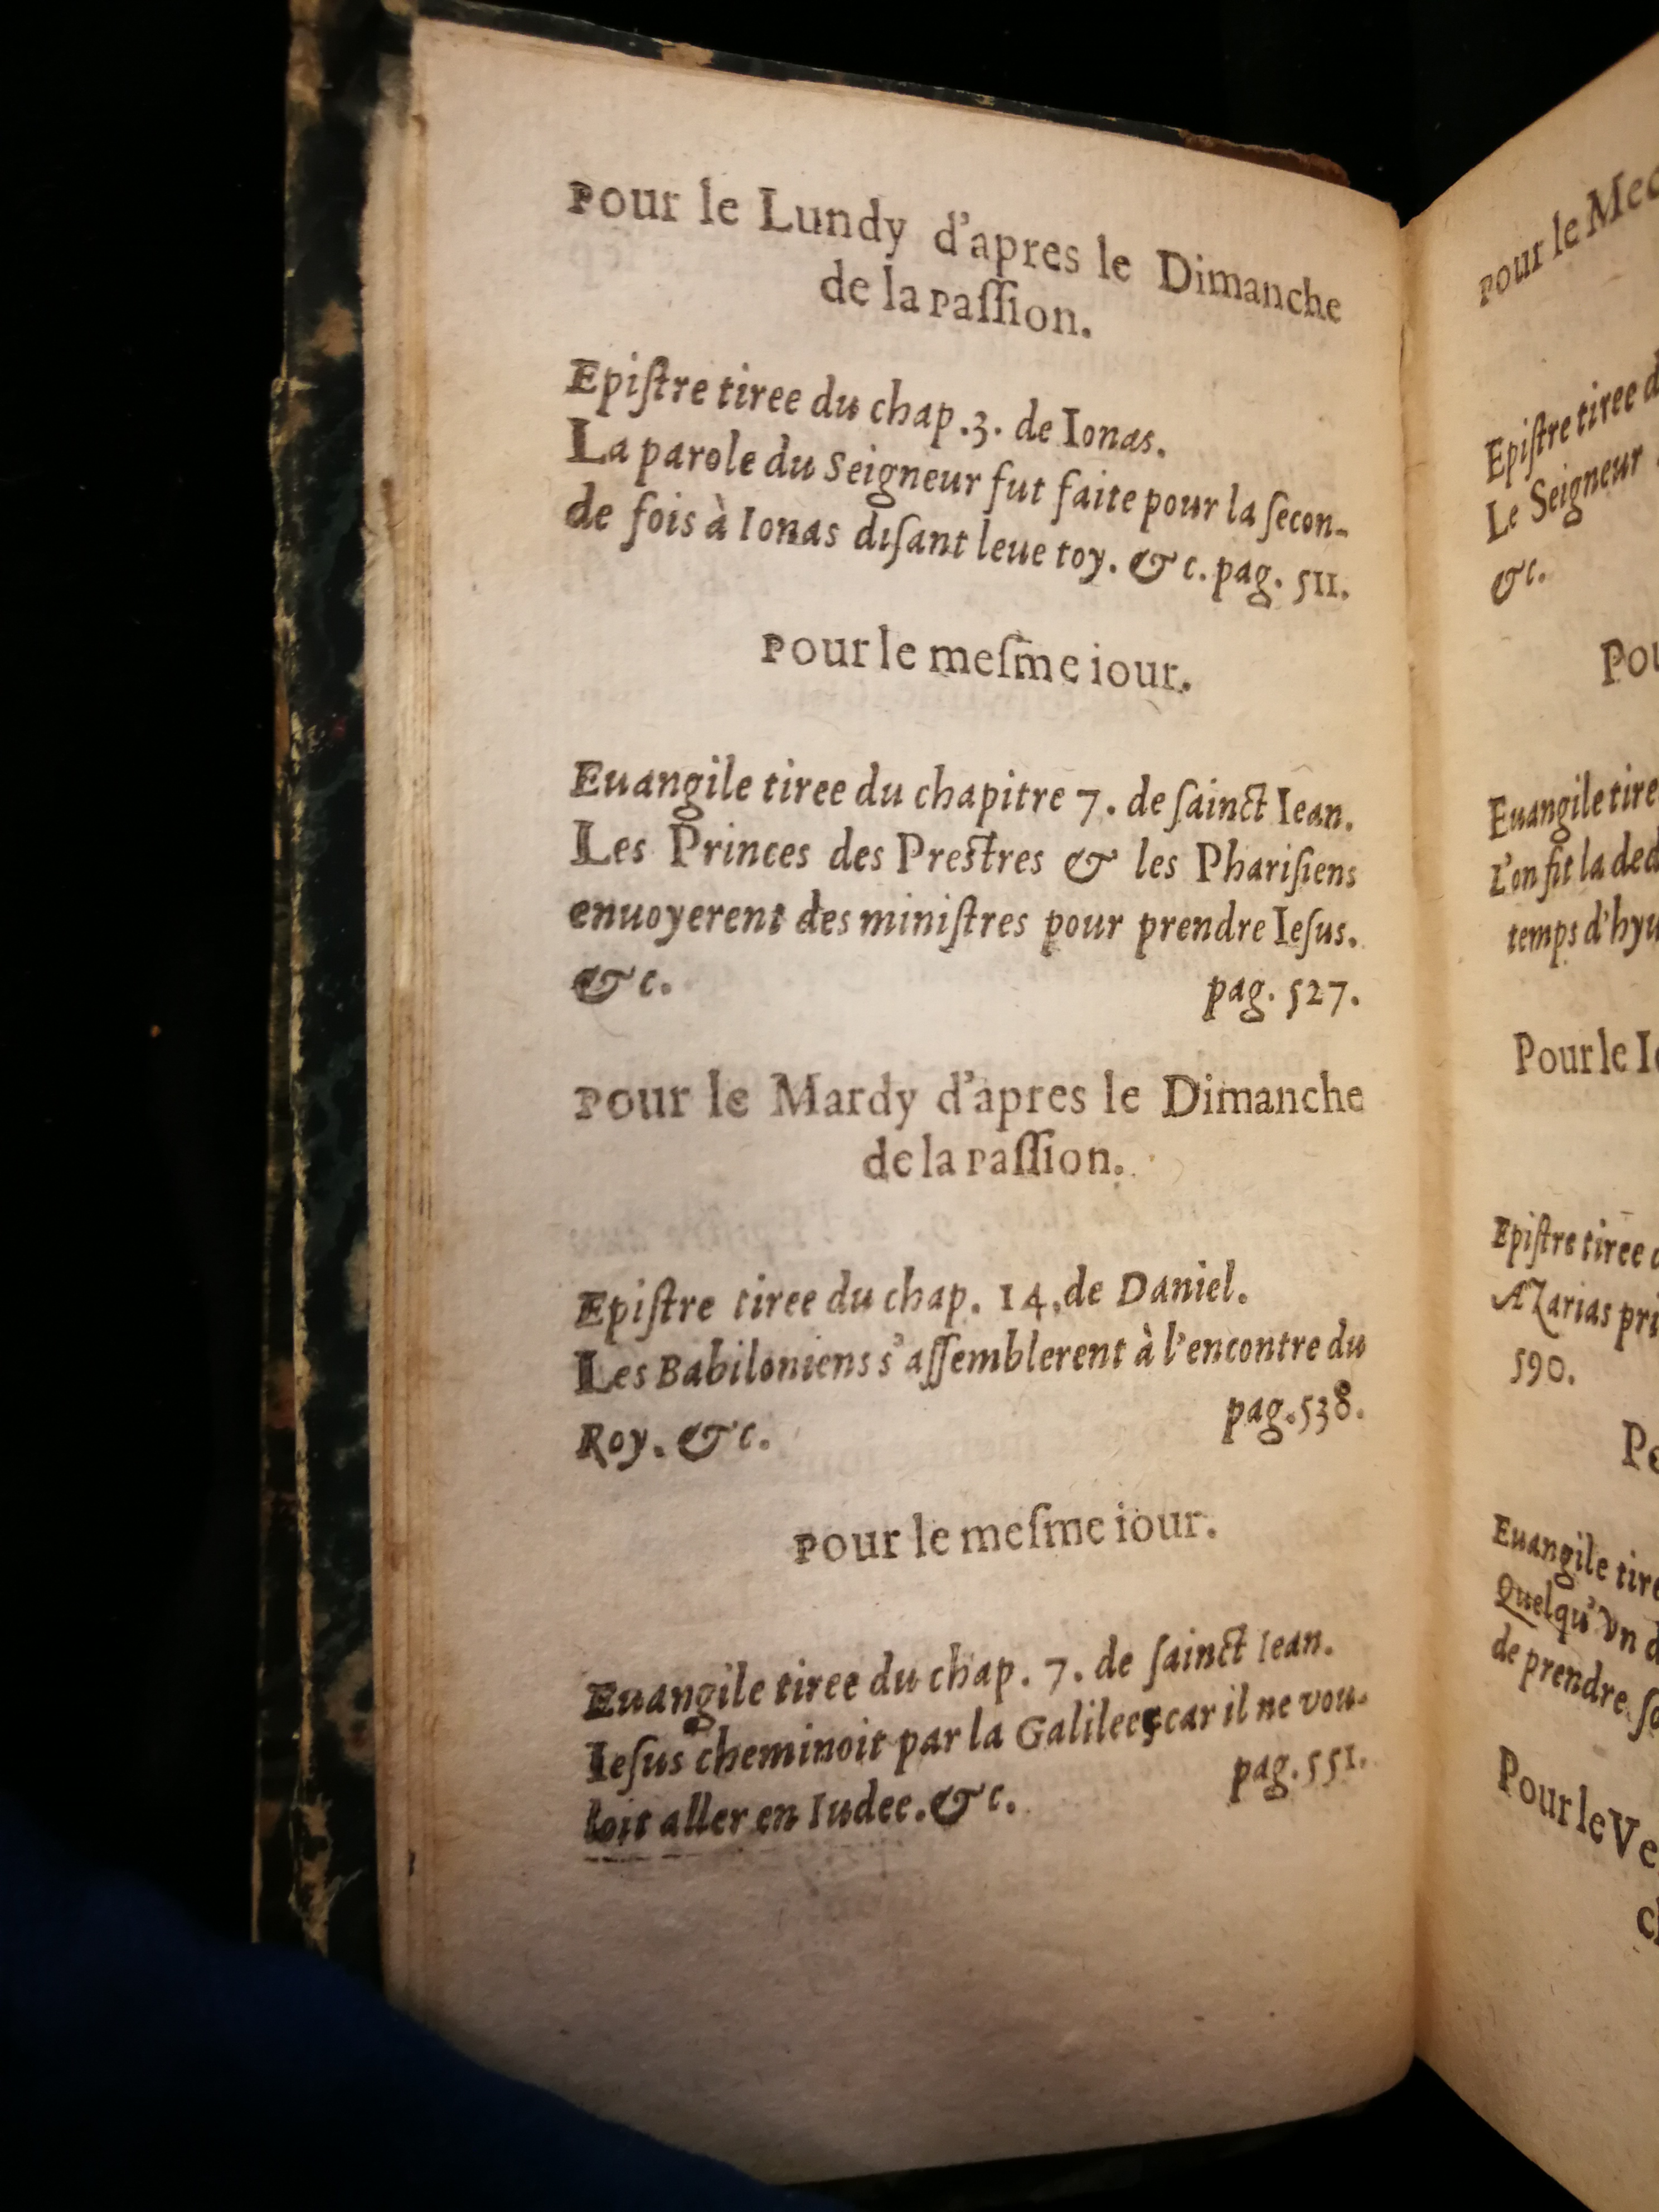 Pour le Lundy d'apres le Dimanche
de la Paſſion.
Epiſtre tiree du chap. 3. de Ionas.
La parole du Seigneur fut faite pour la ſecon-
de fois à Ionas diſant leue toy. &c. pag. 511.
Pour le meſme iour.
Euangile tiree du chapitre 7. de ſainct Iean.
Les Princes des Prestres & les Phariſiens
enuoyerent des miniſtres pour prendre Ieſus.
&c. pag. 527.
Pour le Mardy d'apres le Dimanche
de la Paſſion.
Epiſtre tiree du chap. 14. de Daniel.
Les Babiloniens s'aſſemblerent à l'encontre du
Roy. &c. pag. 538.
Pour le meſme iour.
Euangile tiree du chap. 7. de ſainct Iean.
Ieſus cheminoit par la Galilee, car il ne vou-
loit aller en Iudee. &c. pag. 551.
Pour le Mec
Epiſtre tiree d
Le Seigneur
&c.
Pou
Euangile tire
L'on fit la ded
temps d'hyu
Pour le I
Epiſtre tiree
AZarias pri
590.
Euangile tire
Quelqu'vn d
de prendre
Pour le Ve